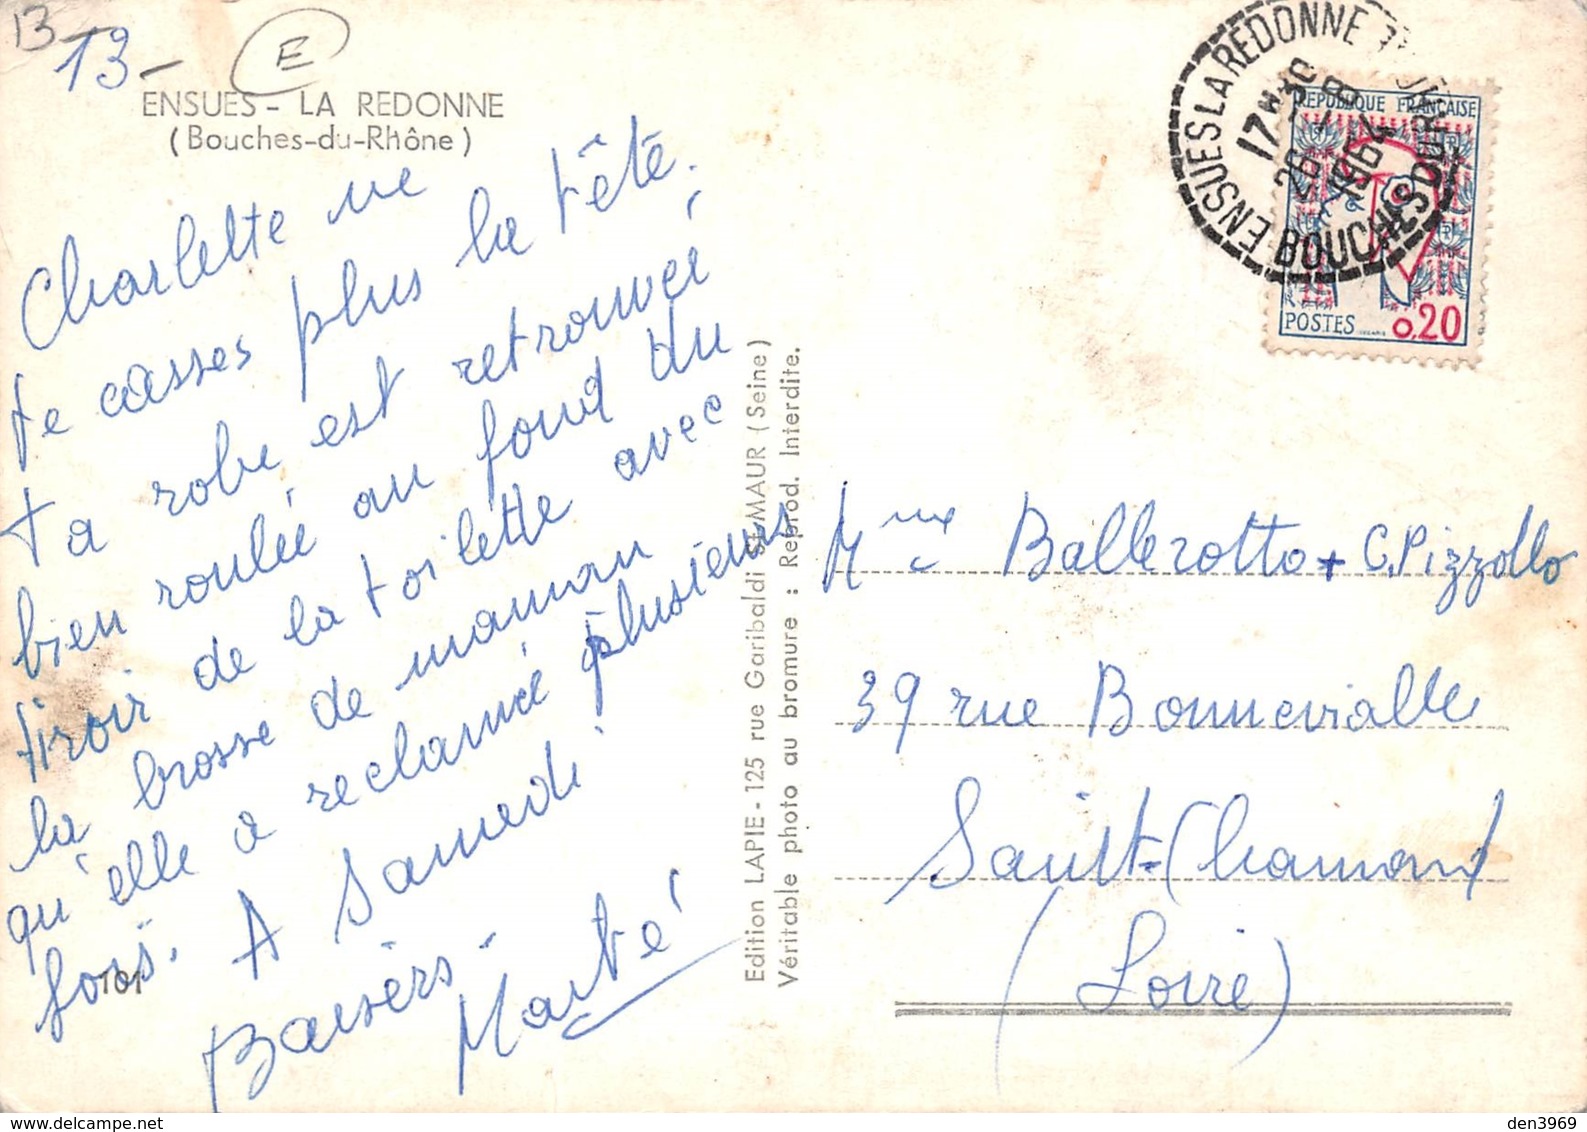 13
13-
E
ENSUES - LA REDONNE
(Bouches-du-Rhône)
Charlette ne
te casses plus la tête.
ta robe est retrouvée
bien roulée au fond du
tiroir de la toilette avec
la brosse de maman
qu'elle a reclamé plusieurs
fois. A Samedi
Baisers -
101
Edition LAPIE - 125 rue Garibaldi St-MAUR (Seine)
Véritable photo au bromure : Reprod. Interdite.
ENSUES LA REDONNE
BOUCHES DU RHONE
17H30
26 - 8
1964
REPUBLIQUE FRANÇAISE
POSTES 0,20
Mme Ballerotto + C. Pizzollo
39 rue Bonnevialle
Saint-Chamond
(Loire)
den3969